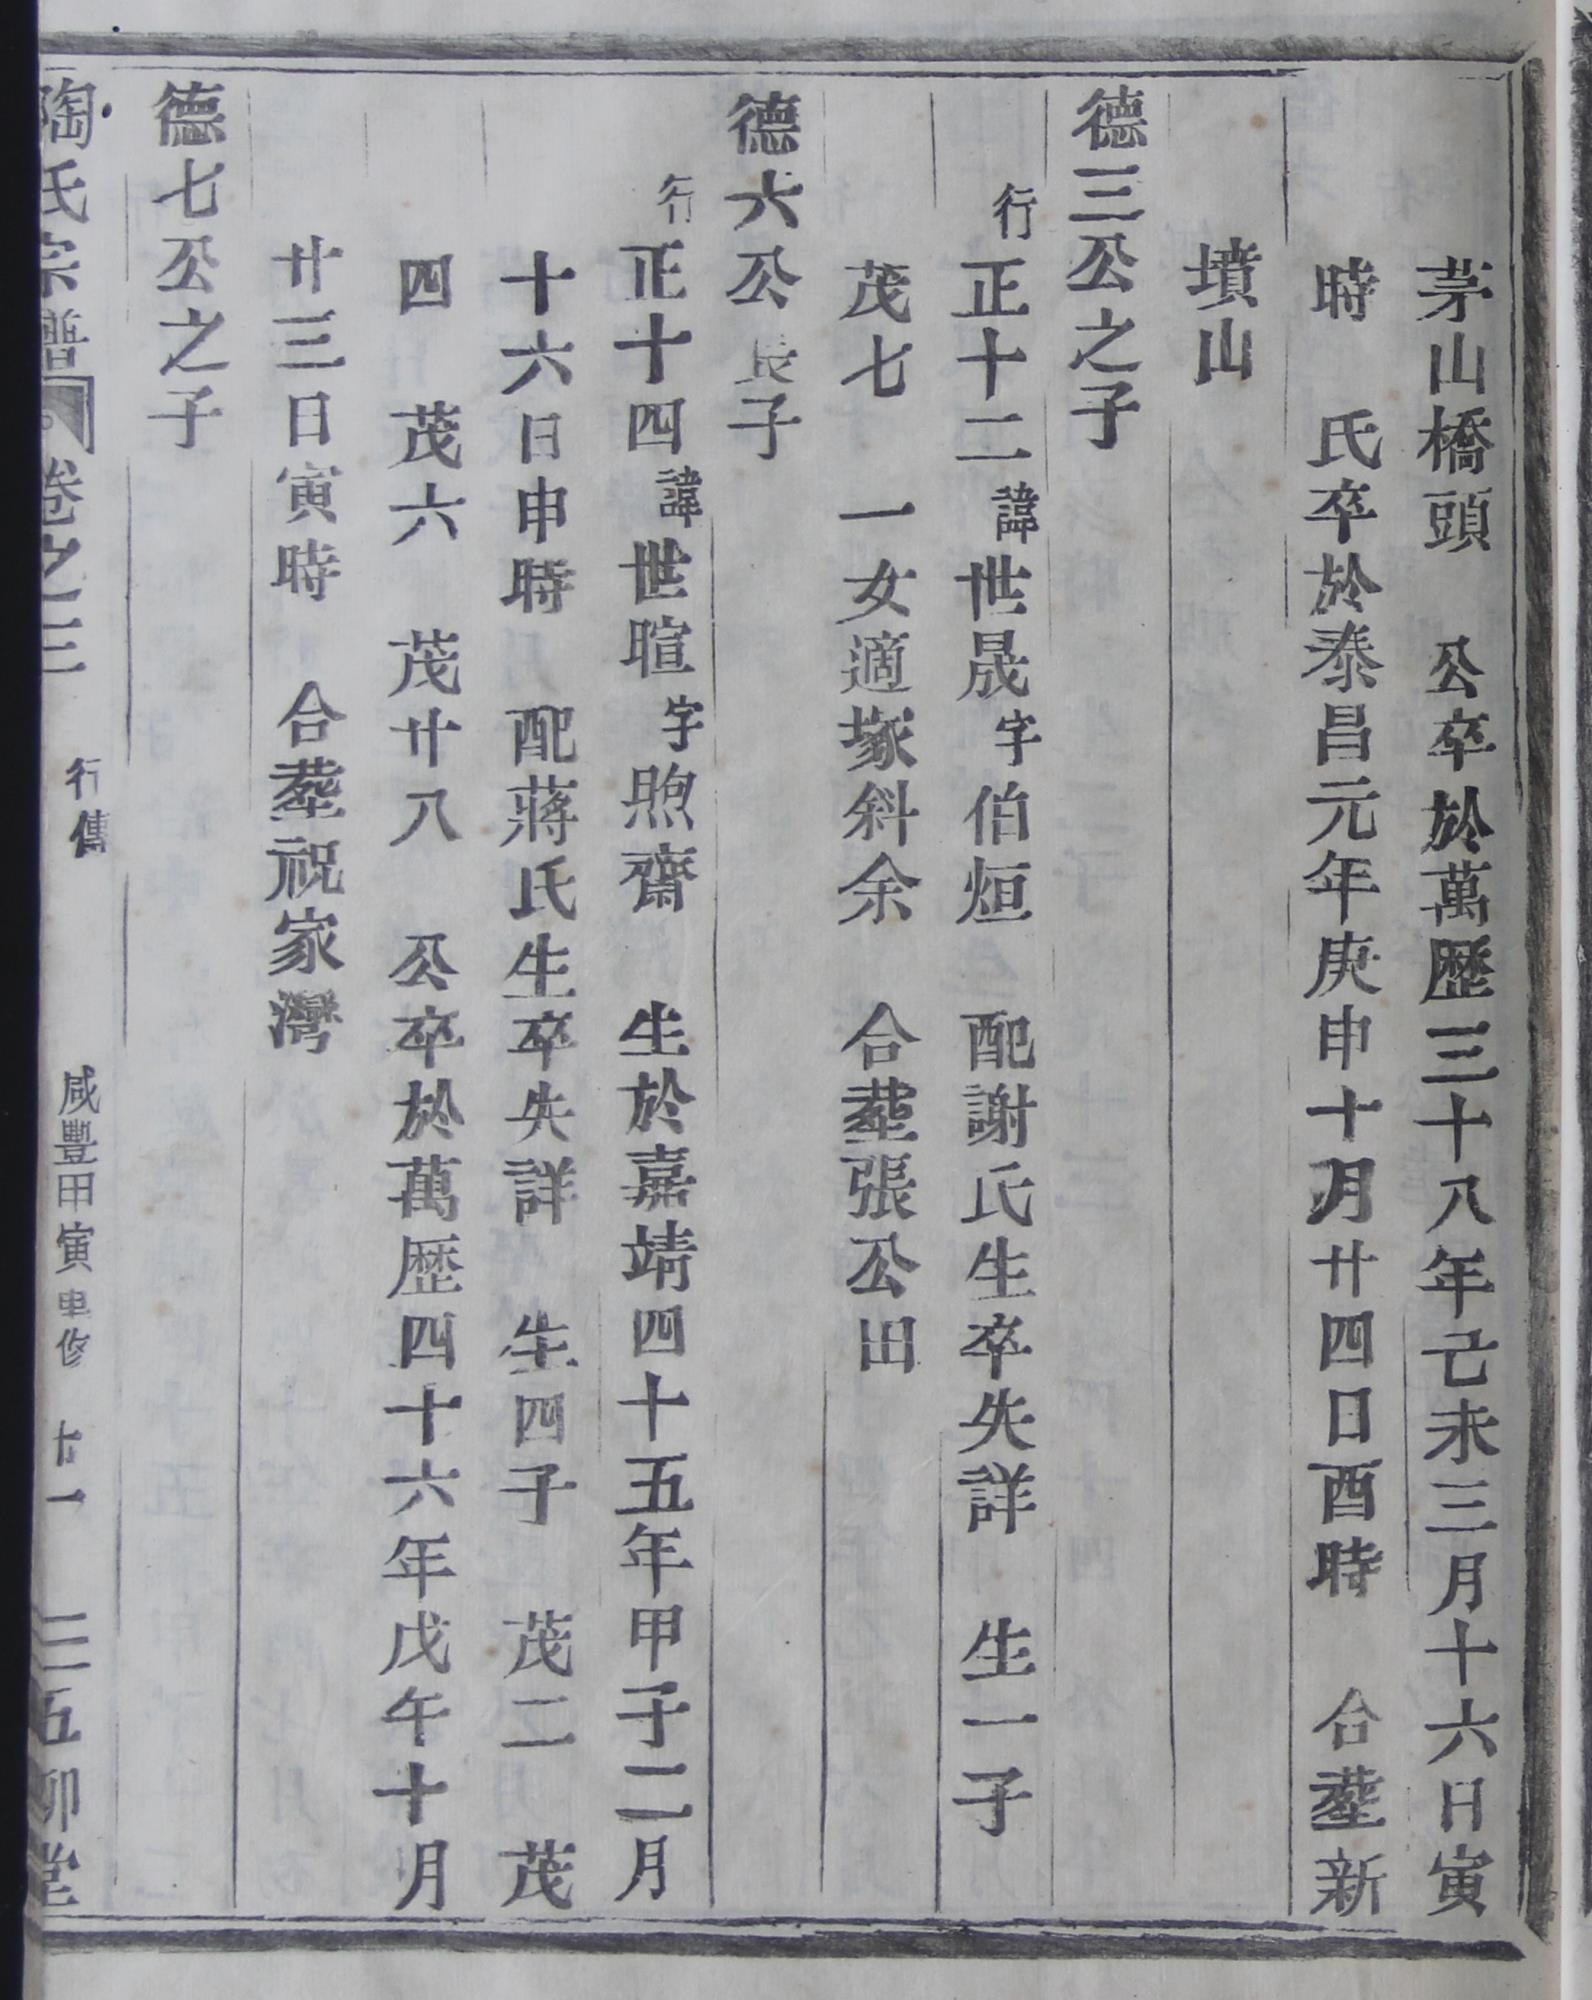 茅山橋頭　公卒於萬歷三十八年己未三月十六日寅
時　氏卒於泰昌元年庚申十月廿四日酉時　合塟新
墳山
德三公之子
行正十二諱世晟字伯烜　配謝氏生卒失詳　生一子
茂七　一女適塚斜余　合塟張公田
德六公長子
行正十四諱世暄字煦齋　生於嘉靖四十五年甲子二月
十六日申時　配蔣氏生卒失詳　生四子　茂二　茂
四　茂六　茂廿八　公卒於萬歷四十六年戊午十月
廿三日寅時　合塟祝家灣
德七公之子
陶氏宗譜　卷之三　行傳　咸豐甲寅重修　十一　五柳堂